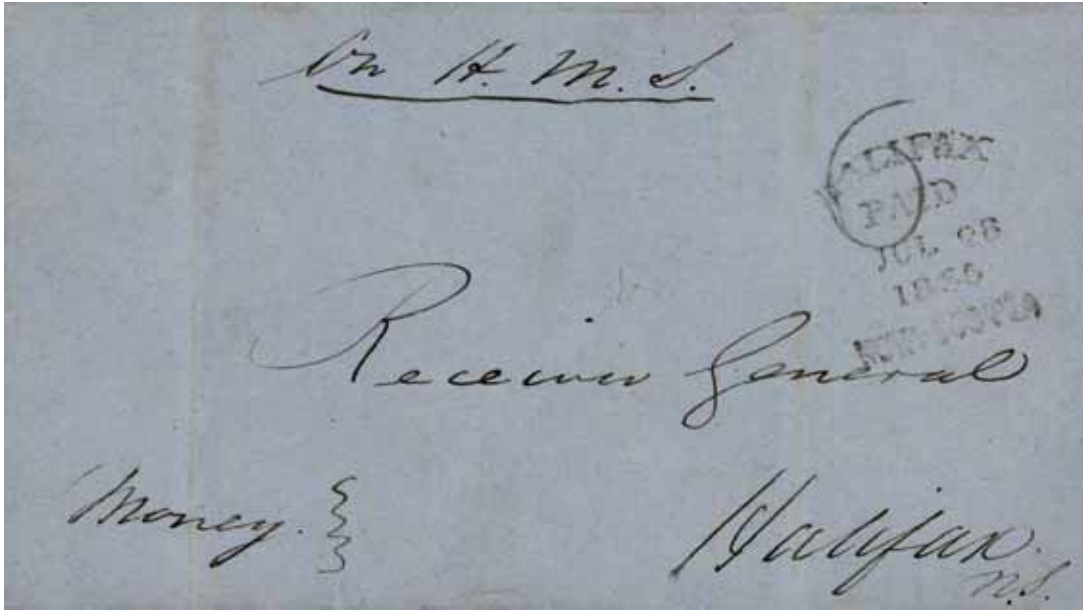 On H. M. S.
HALIFAX
PAID
JUL 28
1856
NOVA-SCOTIA
Receiver General
Money.
Halifax.
N.S.